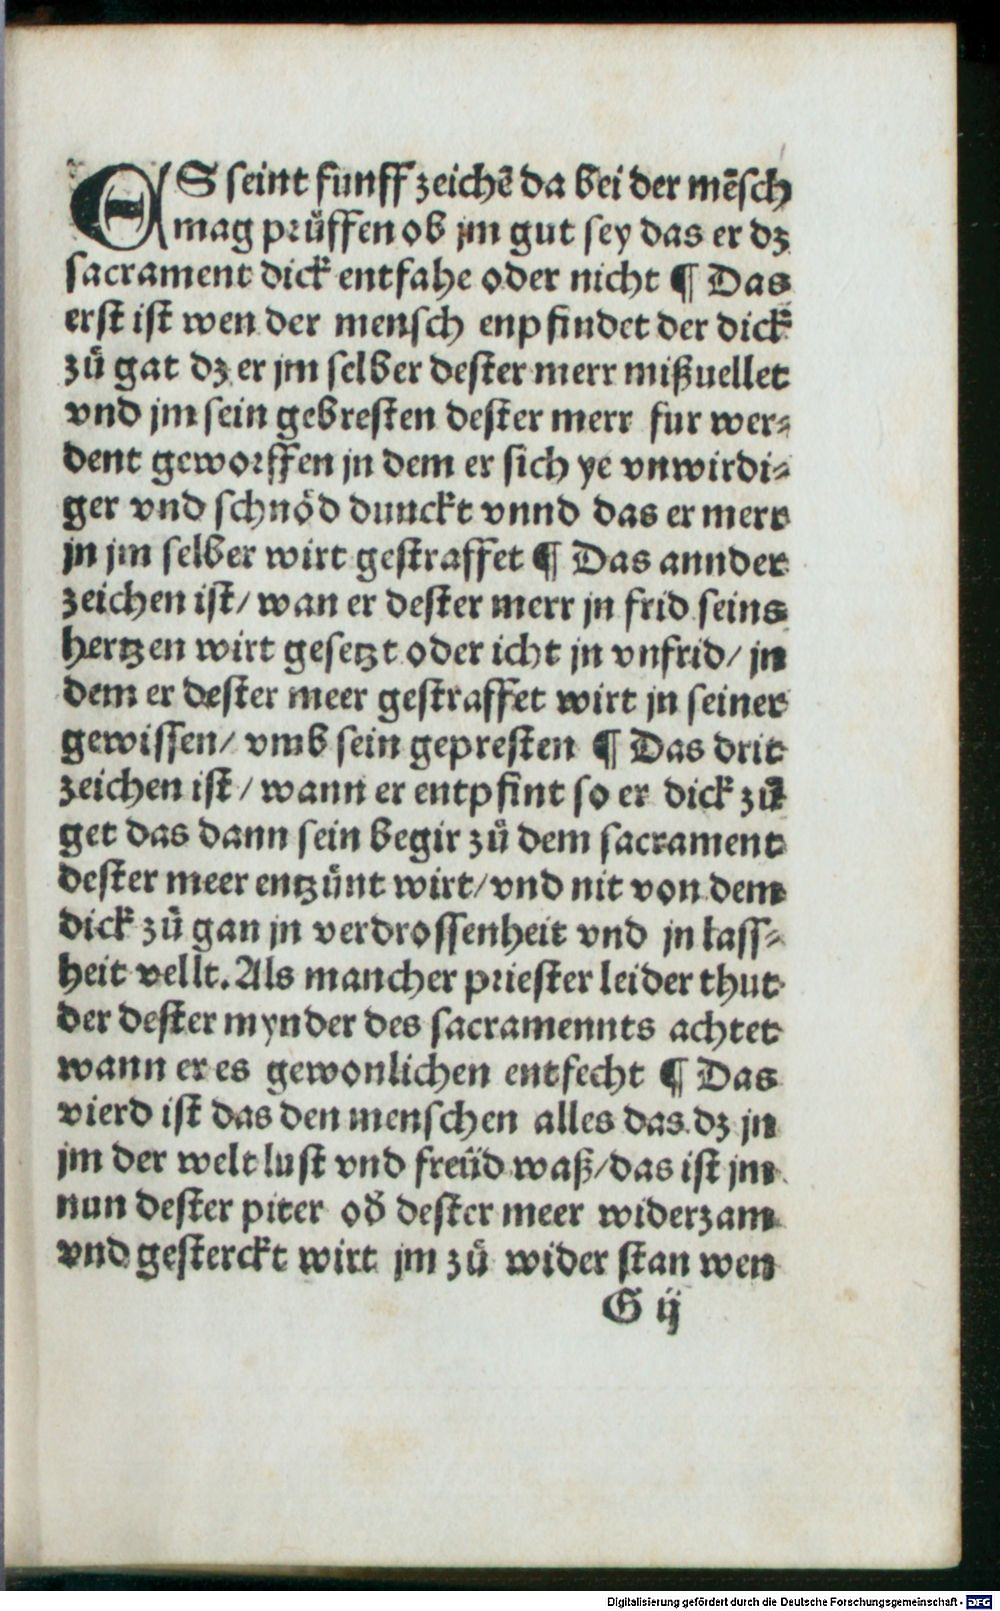 ES seint funff zeichē da bei der mēsch
mag pruͤffen ob jm gut sey das er dz
sacrament dick entfahe oder nicht ¶ Das
erst ist wen der mensch enpfindet der dick
zuͦ gat dz er jm selber dester merr mißuellet
vnd jm sein gebresten dester merr fur wer⸗
dent geworffen jn dem er sich ye vnwirdi⸗
ger vnd schnoͤd dunckt vnnd das er merr
jn jm selber wirt gestraffet ¶ Das annder
zeichen ist/ wan er dester merr jn frid seins
hertzen wirt gesetzt oder icht jn vnfrid/ jn
dem er dester meer gestraffet wirt jn seiner
gewissen/ vmb sein gepresten ¶ Das drit
zeichen ist/ wann er entpfint so er dick zuͦ
get das dann sein begir zuͦ dem sacrament
dester meer entzünt wirt/ vnd nit von dem
dick zuͦ gan jn verdrossenheit vnd jn lass⸗
heit vellt. Als mancher priester leider thut
der dester mynder des sacramennts achtet
wann er es gewonlichen entfecht ¶ Das
vierd ist das den menschen alles das dz jn
jm der welt lust vnd freüd waß/ das ist jm
nun dester piter oď dester meer widerzam
vnd gesterckt wirt jm zuͦ wider stan wen
G ij
Digitalisierung gefördert durch die Deutsche Forschungsgemeinschaft - DFG